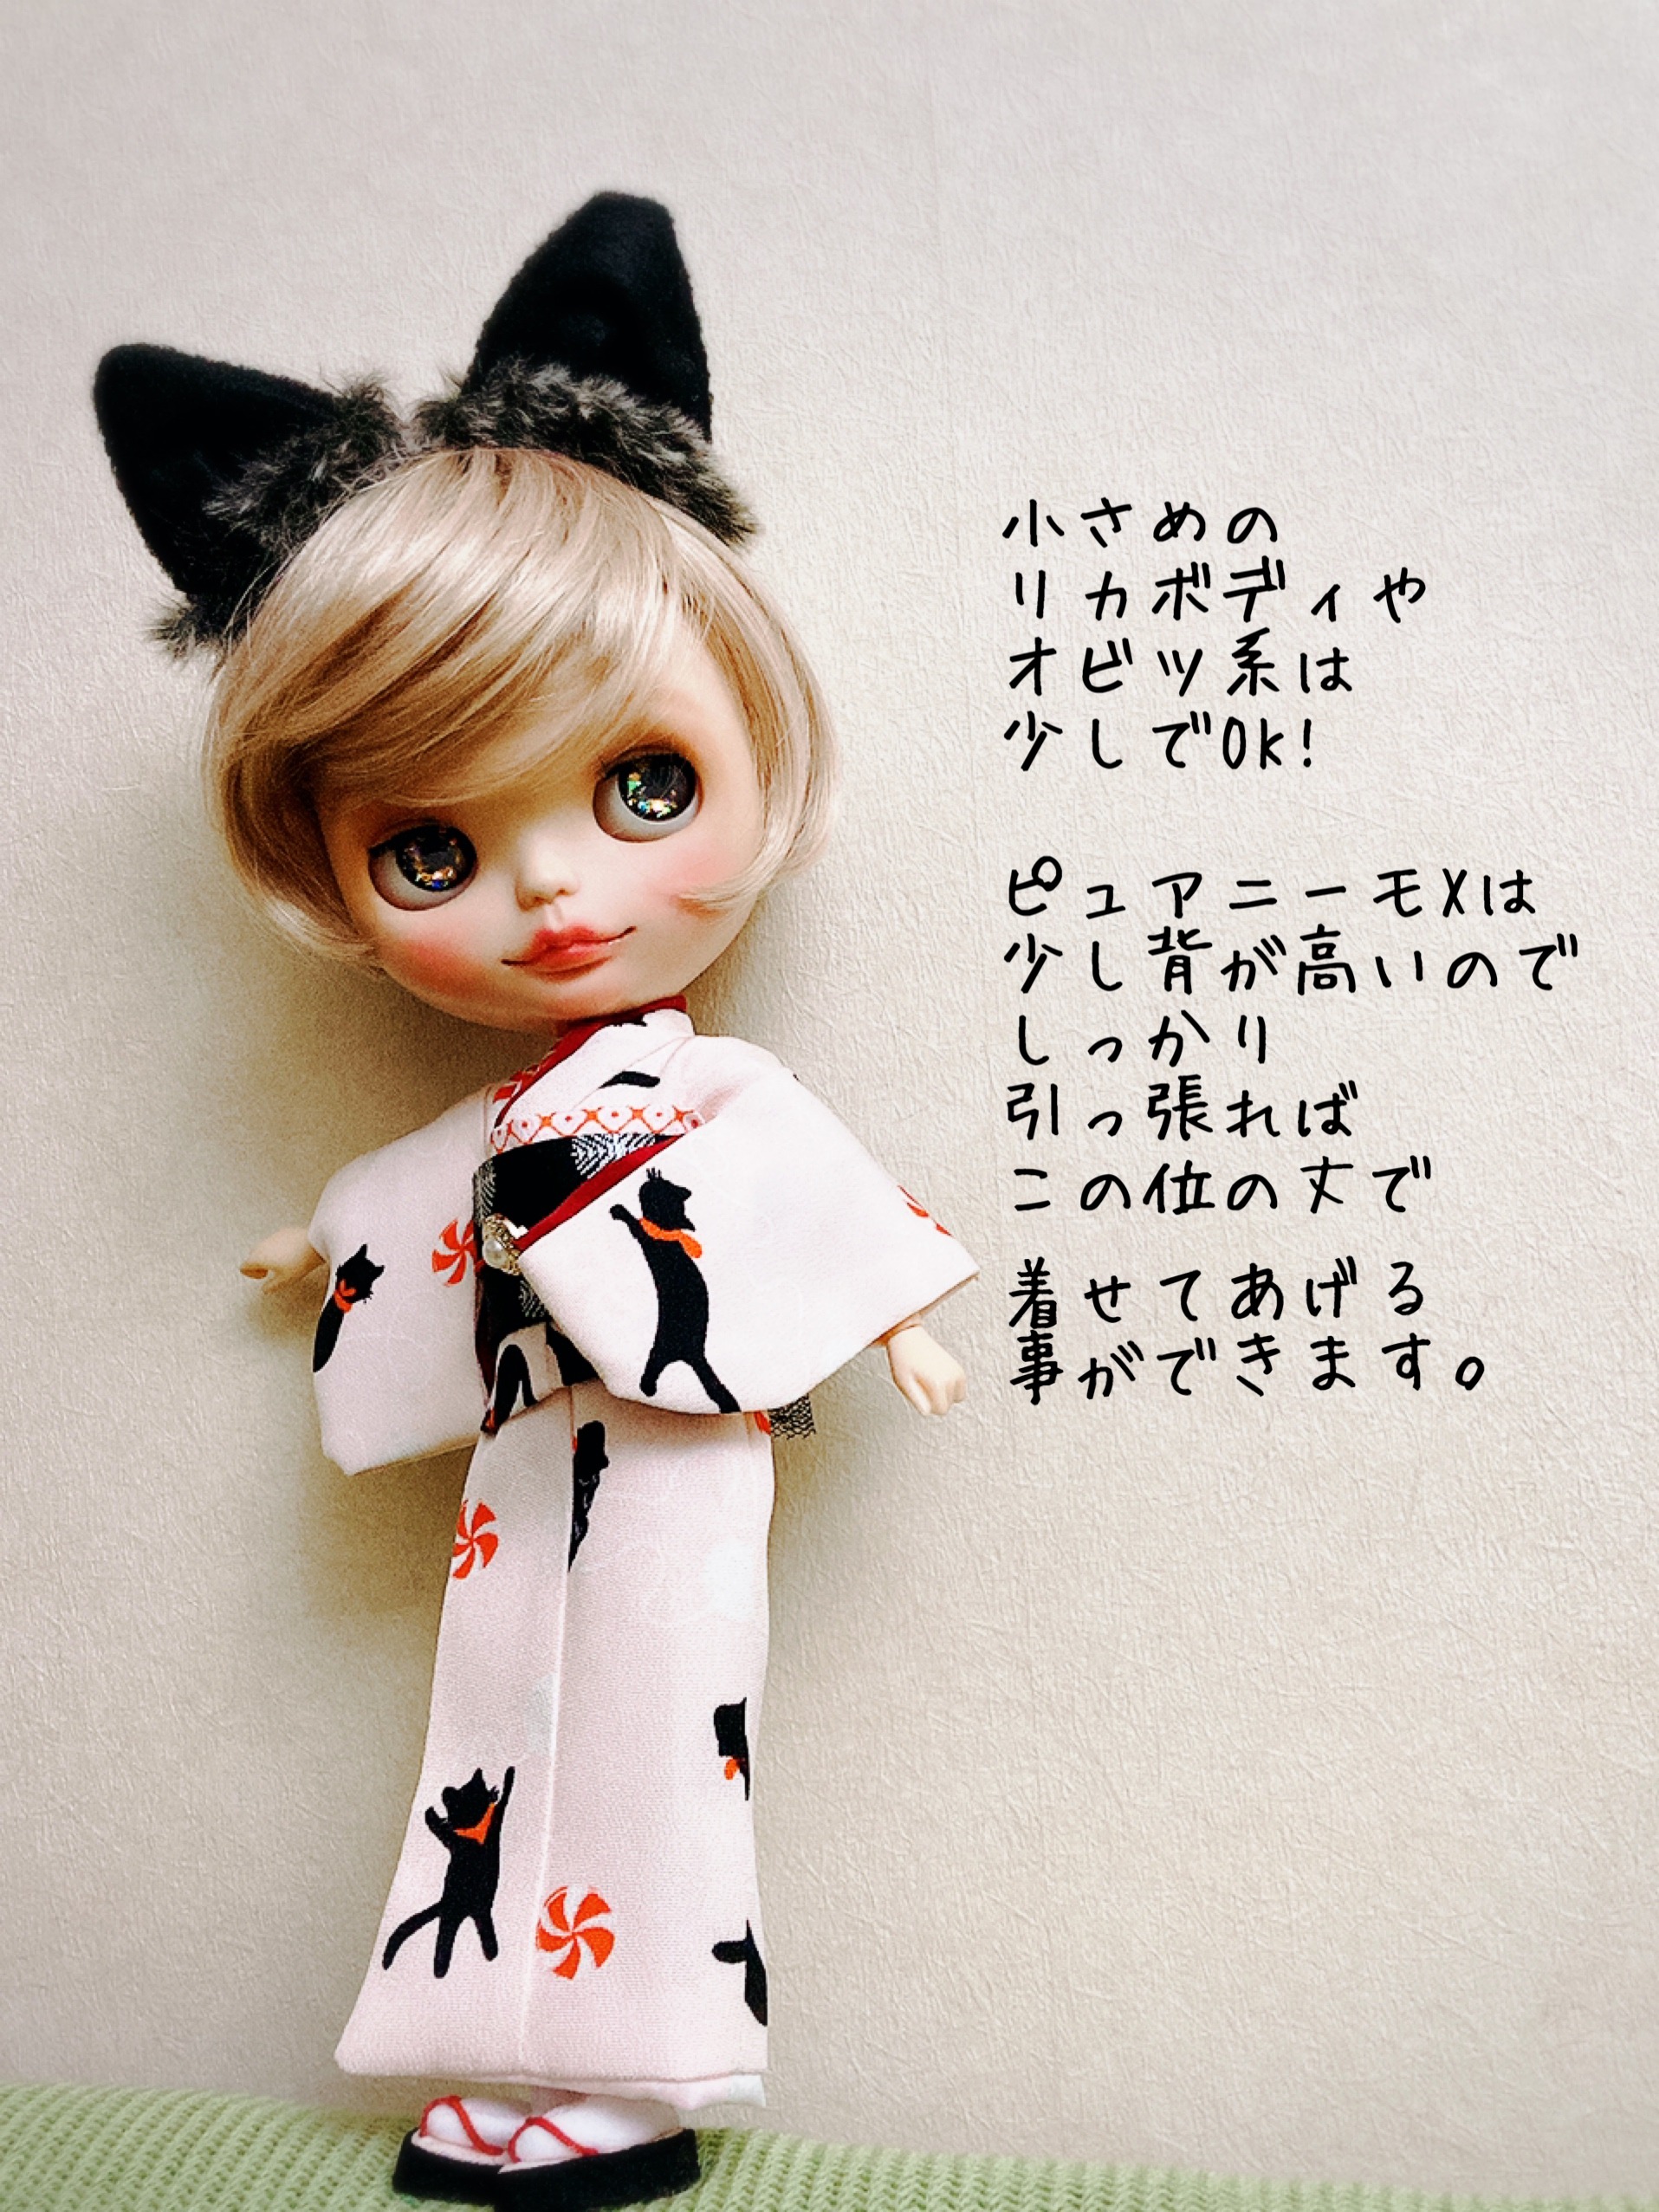 小さめの
リカボディや
オビツ系は
少しでOk!
ピュアニーモXは
少し背が高いので
しっかり
引っ張れば
この位の丈で
着せてあげる
事ができます。